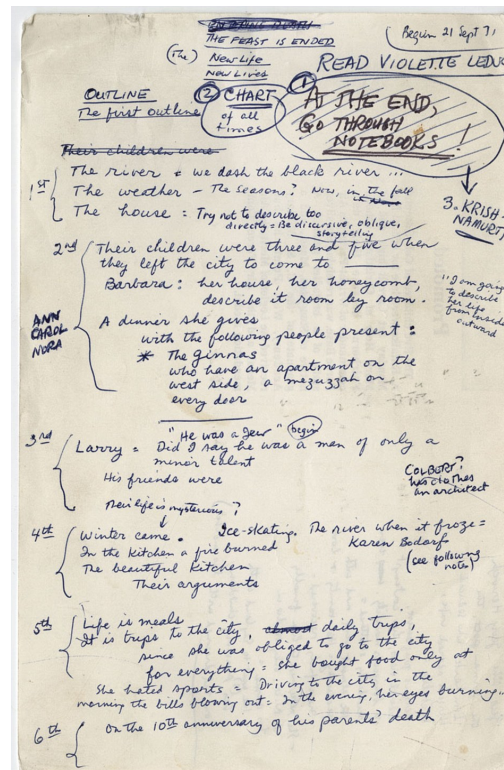 THE FEAST IS ENDED
(The) New Life
New Lives
Begun 21 Sept 71
READ VIOLETTE LEDU
OUTLINE
The first outline
② CHART
of all
times
①
AT THE END,
GO THROUGH
NOTEBOOKS!
3. KRISH
NAMURTI
Their children were
1st
The river = we dash the black river...
The weather – The seasons? Now, in the fall
The house = Try not to describe too
directly = Be discursive, oblique,
storytelling
2nd
Their children were three and five when
they left the city to come to
Barbara: her house, her honeycomb,
describe it room by room.
"I am going
to describe
her life
from inside
outward
ANN
CAROL
NORA
A dinner she gives
with the following people present:
* The Ginnas
who have an apartment on the
west side, a mezuzzah on
every door
"He was a Jew" begin
3rd
Larry = Did I say he was a man of only a
minor talent
His friends were
COLBERT?
has clothes
an architect
Their life is mysterious?
4th
Winter came. Ice-skating. The river when it froze =
In the kitchen a fire burned
Karen Bodarf
The beautiful kitchen
(see following
notes)
Their arguments
5th
Life is meals
It is trips to the city, almost daily trips,
since she was obliged to go to the city
for everything = she bought food only at
She hated sports = Driving to the city in the
morning the bills blowing out = In the evening, her eyes burning...
6th
On the 10th anniversary of his parents' death